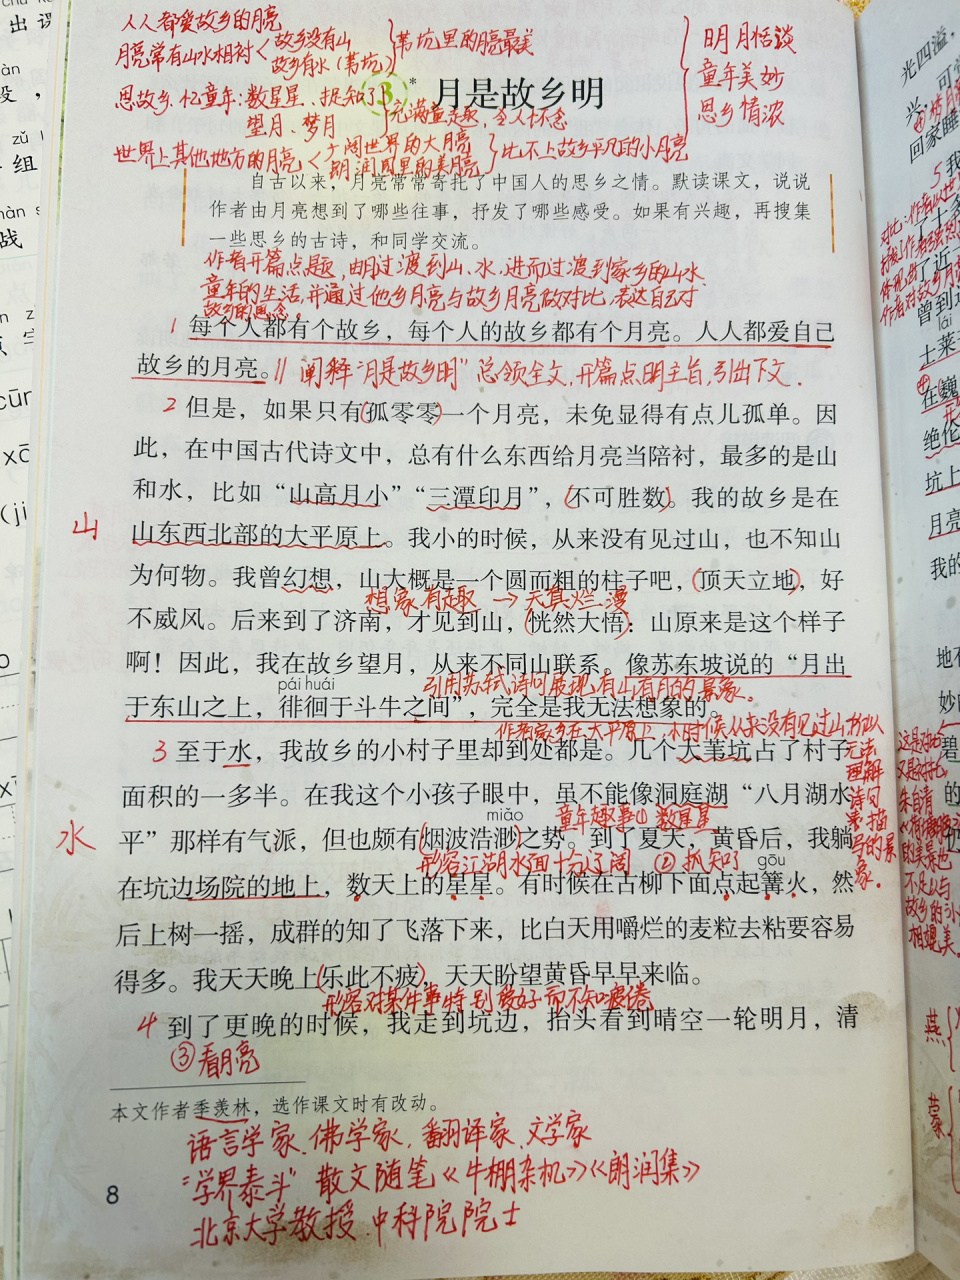 人人都爱故乡的月亮
月亮常有山水相衬
故乡没有山
故乡有水（苇坑）
苇坑里的月亮最美
思故乡、忆童年：数星星、捉知了
望月、梦月
充满童趣，令人怀念
世界上其他地方的月亮
广阔世界的大月亮
朗润园里的美月亮
比不上故乡平凡的小月亮
明月恬谈
童年美妙
思乡情浓
3* 月是故乡明
自古以来，月亮常常寄托了中国人的思乡之情。默读课文，说说
作者由月亮想到了哪些往事，抒发了哪些感受。如果有兴趣，再搜集
一些思乡的古诗，和同学交流。
作者开篇点题，由月过渡到山、水，进而过渡到家乡的山水
童年的生活，并通过他乡月亮与故乡月亮做对比，表达自己对
故乡的思念。
1 每个人都有个故乡，每个人的故乡都有个月亮。人人都爱自己
故乡的月亮。// 阐释“月是故乡明”总领全文，开篇点明主旨，引出下文.
2 但是，如果只有(孤零零)一个月亮，未免显得有点儿孤单。因
此，在中国古代诗文中，总有什么东西给月亮当陪衬，最多的是山
和水，比如“山高月小”“三潭印月”，(不可胜数)。我的故乡是在
山
山东西北部的大平原上。我小的时候，从来没有见过山，也不知山
为何物。我曾幻想，山大概是一个圆而粗的柱子吧，(顶天立地)，好
想象有趣 → 天真烂漫
不威风。后来到了济南，才见到山，(恍然大悟)：山原来是这个样子
啊！因此，我在故乡望月，从来不同山联系。像苏东坡说的“月出
引用苏轼诗句展现有山有月的景象。
pái huái
于东山之上，徘徊于斗牛之间”，完全是我无法想象的。
作者家乡在大平原上，小时候从来没有见过山所以
无法
理解
诗句
里描
写的景
象。
3 至于水，我故乡的小村子里却到处都是。几个大苇坑占了村子
面积的一多半。在我这个小孩子眼中，虽不能像洞庭湖“八月湖水
miǎo
童年趣事① 数星星
水
平”那样有气派，但也颇有(烟波浩渺)之势。到了夏天，黄昏后，我躺
形容江湖水面十分辽阔 ② 抓知了
gōu
在坑边场院的地上，数天上的星星。有时候在古柳下面点起篝火，然
后上树一摇，成群的知了飞落下来，比白天用嚼烂的麦粒去粘要容易
得多。我天天晚上(乐此不疲)，天天盼望黄昏早早来临。
形容对某件事特别爱好而不知疲倦
4 到了更晚的时候，我走到坑边，抬头看到晴空一轮明月，清
③ 看月亮
本文作者季羡林，选作课文时有改动。
语言学家、佛学家、翻译家、文学家
“学界泰斗” 散文随笔《牛棚杂忆》《朗润集》
北京大学教授 中科院院士
8